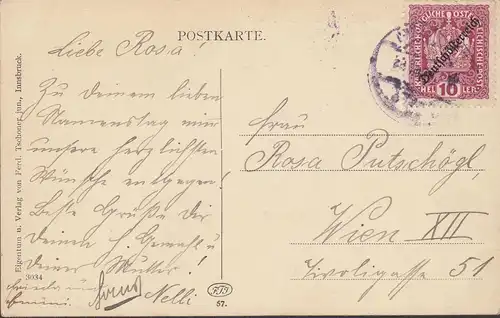 POSTKARTE.
Liebe Rosa!
Zu Deinem lieben
Namenstag nimm
unsere herzlichsten
Wünsche entgegen!
Beste Grüße Dir
Deinen H. Gemahl u
Deiner Mutter!
Nelli
Frau
Rosa Putschögl
Wien XII
Tivoligasse 51
KAISERLICHE KÖNIGLICHE ÖSTERREICHISCHE POST
Deutschösterreich
HELLER 10
Eigentum u. Verlag von Ferd. Tschoner jun., Innsbruck.
3934
FTI
57.